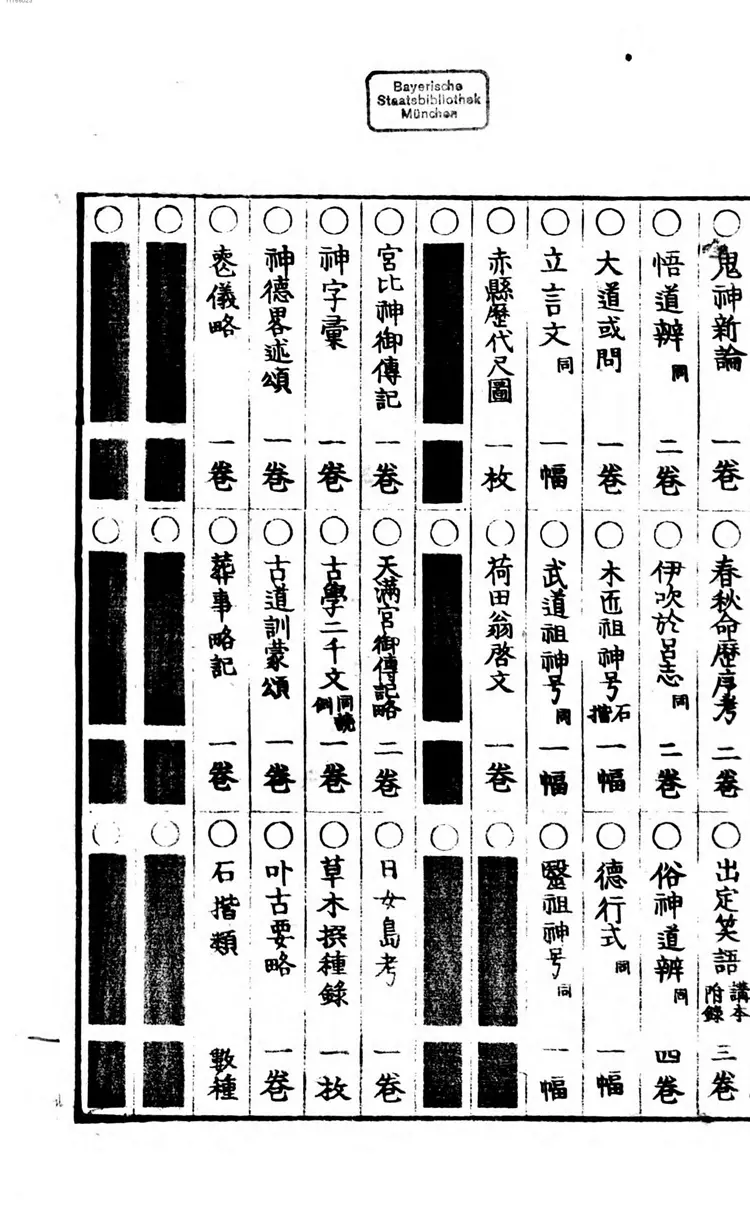 Bayerische
Staatsbibliothek
München
○鬼神新論 一卷
○悟道辨 同 二卷
○大道或問 一卷
○立言文 同 一幅
○赤縣歷代尺圖 一枚
○宮比神御傳記 一卷
○神字彙 一卷
○神德畧述頌 一卷
○喪儀略 一卷
○春秋命歷序考 二卷
○伊吹於呂志 同 二卷
○木匠祖神号 石摺 一幅
○武道祖神号 同 一幅
○荷田翁啓文 一卷
○天滿宮御傳記略 二卷
○古學二千文 同読例 一卷
○古道訓蒙頌 一卷
○葬事略記 一卷
○出定笑語 講本附錄 三卷
○俗神道辨 同 四卷
○德行式 同 一幅
○醫祖神号 同 一幅
○日女島考 一卷
○草木撰種錄 一枚
○叶古要略 一卷
○石摺類 數種